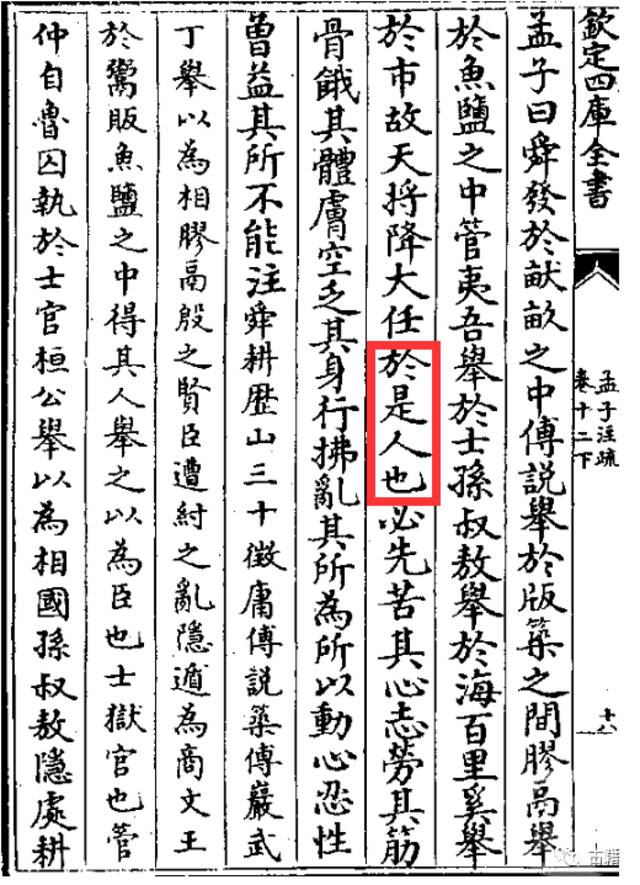 欽定四庫全書
孟子注疏
卷十二下
孟子曰舜發於畎畝之中傅説舉於版築之間膠鬲舉
於魚鹽之中管夷吾舉於士孫叔敖舉於海百里奚舉
於市故天將降大任於是人也必先苦其心志勞其筋
骨餓其體膚空乏其身行拂亂其所為所以動心忍性
曾益其所不能注舜耕歴山三十徴庸傅説築傅巖武
丁舉以為相膠鬲殷之賢臣遭紂之亂隱遁為商文王
於鬻販魚鹽之中得其人舉之以為臣也士獄官也管
仲自魯囚執於士官桓公舉以為相國孫叔敖隱處耕
古籍